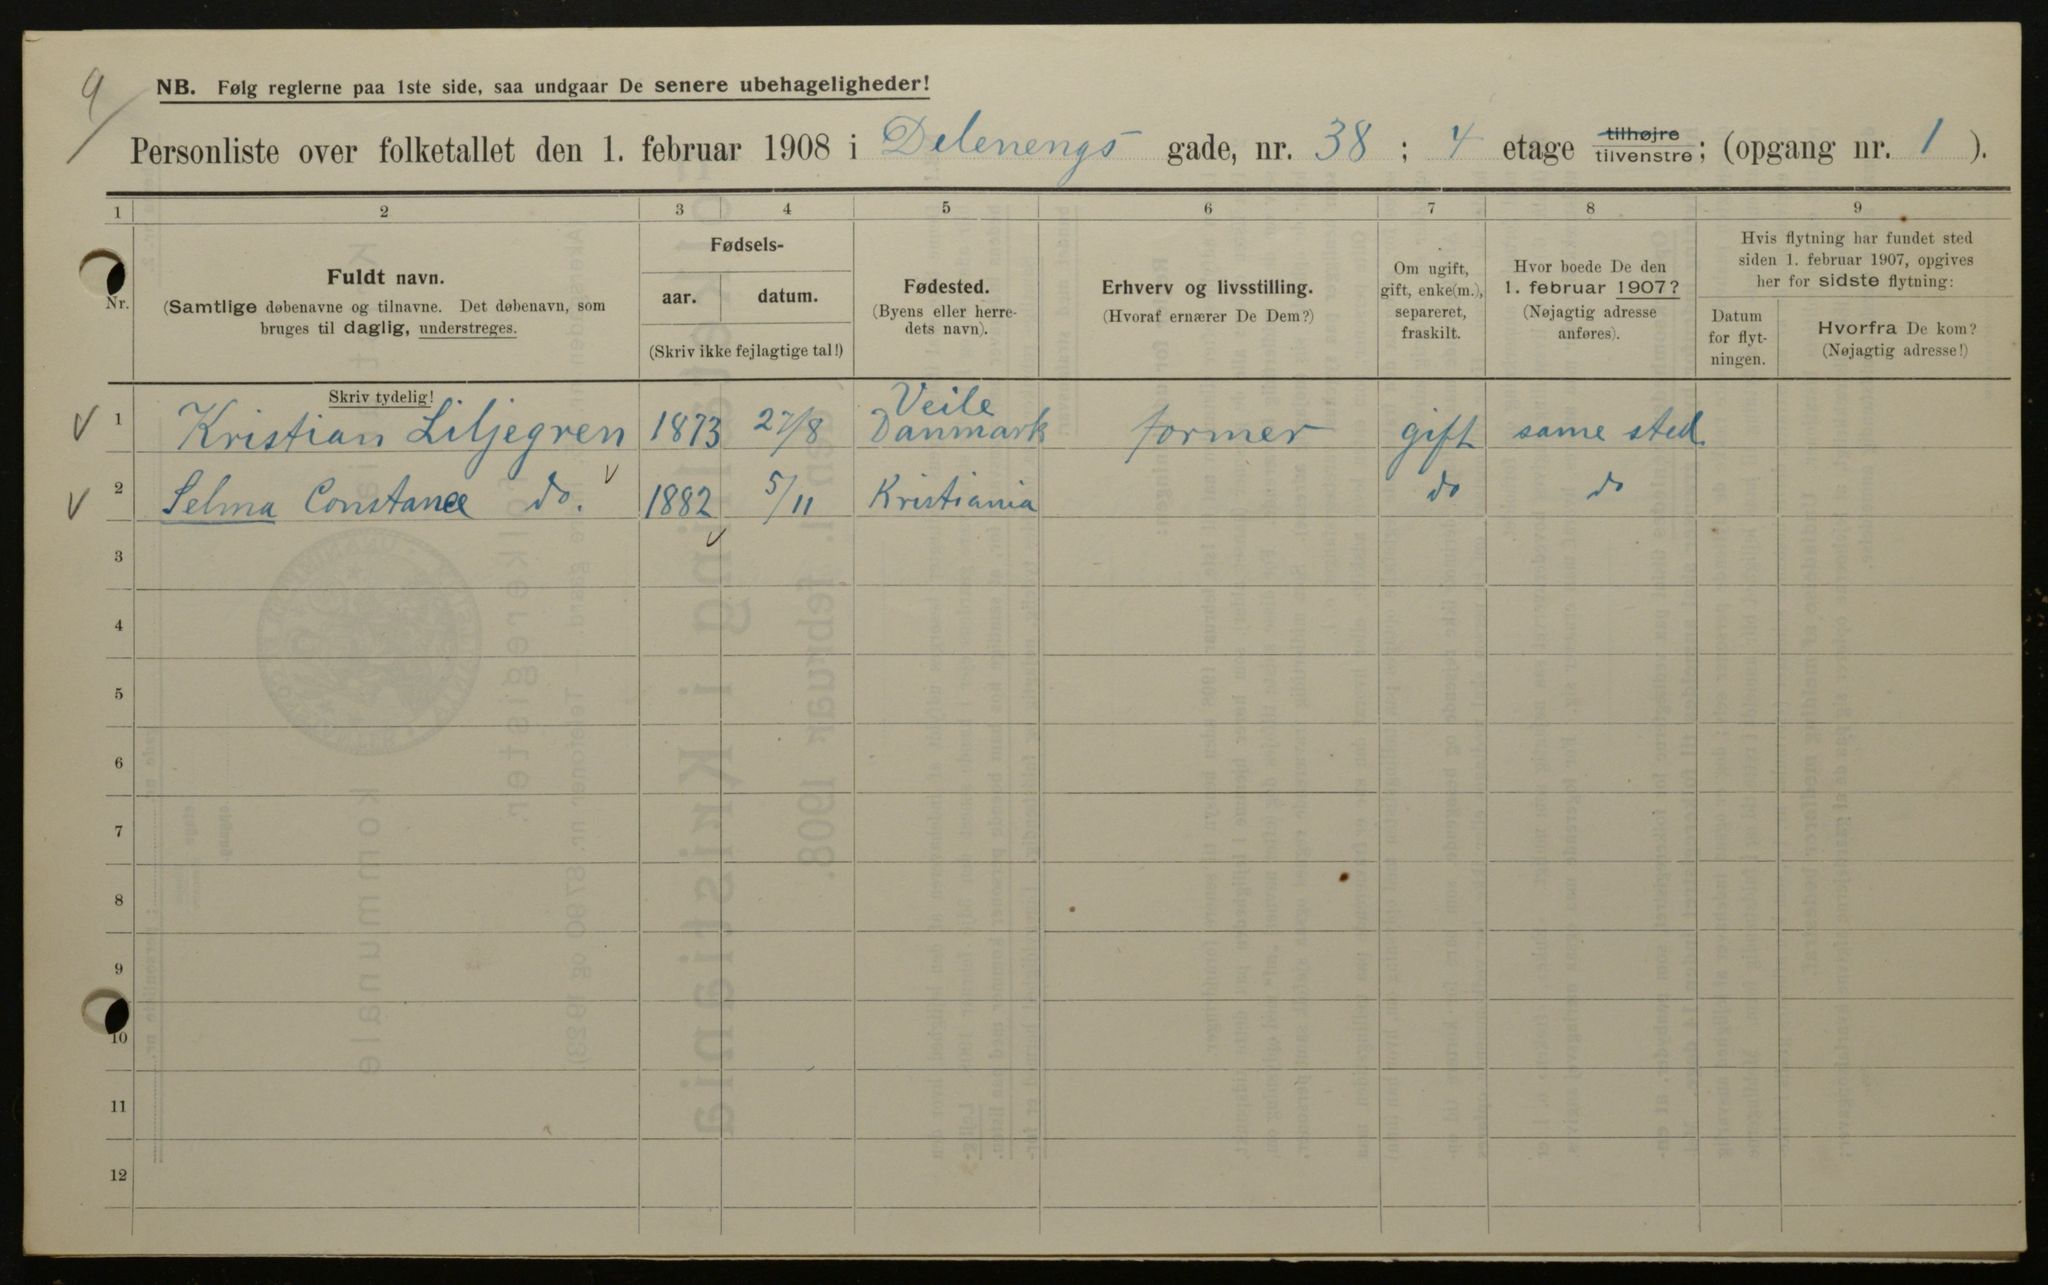 9
NB. Følg reglerne paa 1ste side, saa undgaar De senere ubehageligheder!
Personliste over folketallet den 1. februar 1908 i Delenengs gade, nr. 38 ; 4 etage tilhøjre tilvenstre; (opgang nr. 1 ).
1 2 3 4 5 6 7 8 9
Nr.
Fuldt navn.
(Samtlige døbenavne og tilnavne. Det døbenavn, som
bruges til daglig, understreges.
Fødsels-
aar. datum.
(Skriv ikke fejlagtige tal!)
Fødested.
(Byens eller herre-
dets navn).
Erhverv og livsstilling.
(Hvoraf ernærer De Dem?)
Om ugift,
gift, enke(m.),
separeret,
fraskilt.
Hvor boede De den
1. februar 1907?
(Nøjagtig adresse
anføres).
Hvis flytning har fundet sted
siden 1. februar 1907, opgives
her for sidste flytning:
Datum
for flyt-
ningen.
Hvorfra De kom?
(Nøjagtig adresse!)
Skriv tydelig!
1 Kristian Liljegren 1873 27/8 Veile Danmark former gift same sted
2 Selma Constance do. 1882 5/11 Kristiania do do
3
4
5
6
7
8
9
10
11
12